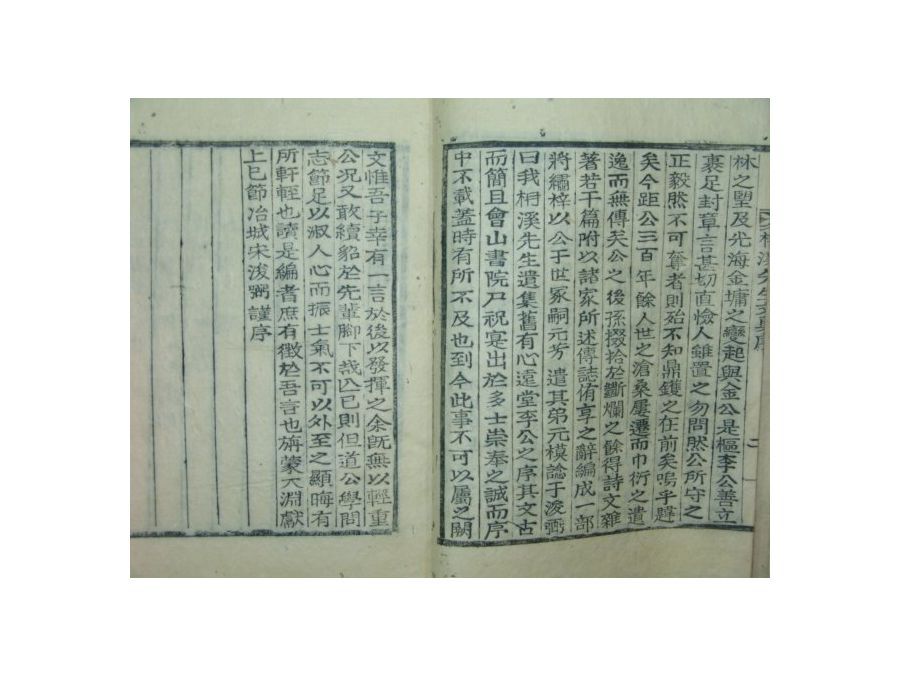 桐溪先生文集序
林之望及光海金墉之變起與金公是樞李公善立
裹足封章言甚切直憸人雖置之勿問然公所守之
正毅然不可奪者則殆不知鼎鑊之在前矣嗚乎韙
矣今距公三百年餘人世之滄桑屢遷而巾衍之遺
逸而無傳矣公之後孫掇拾於斷爛之餘得詩文雜
著若干篇附以諸家所述傳誌侑享之辭編成一部
將繡梓以公于世冢嗣元芳遣其弟元模諗于浚弼
曰我桐溪先生遺集舊有心遠堂李公之序其文古
而簡且會山書院尸祝寔出於多士崇奉之誠而序
中不載蓋時有所不及也到今此事不可以屬之闕
文惟吾子幸有一言於後以發揮之余旣無以輕重
公況又敢續貂於先輩脚下哉㒃已則但道公學問
志節足以淑人心而振士氣不可以外至之顯晦有
所軒輊也讀是編者庶有徵於吾言也旃蒙大淵獻
上巳節冶城宋浚弼謹序